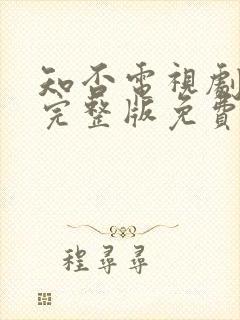 知否電視劇
完整版免費
程尋尋